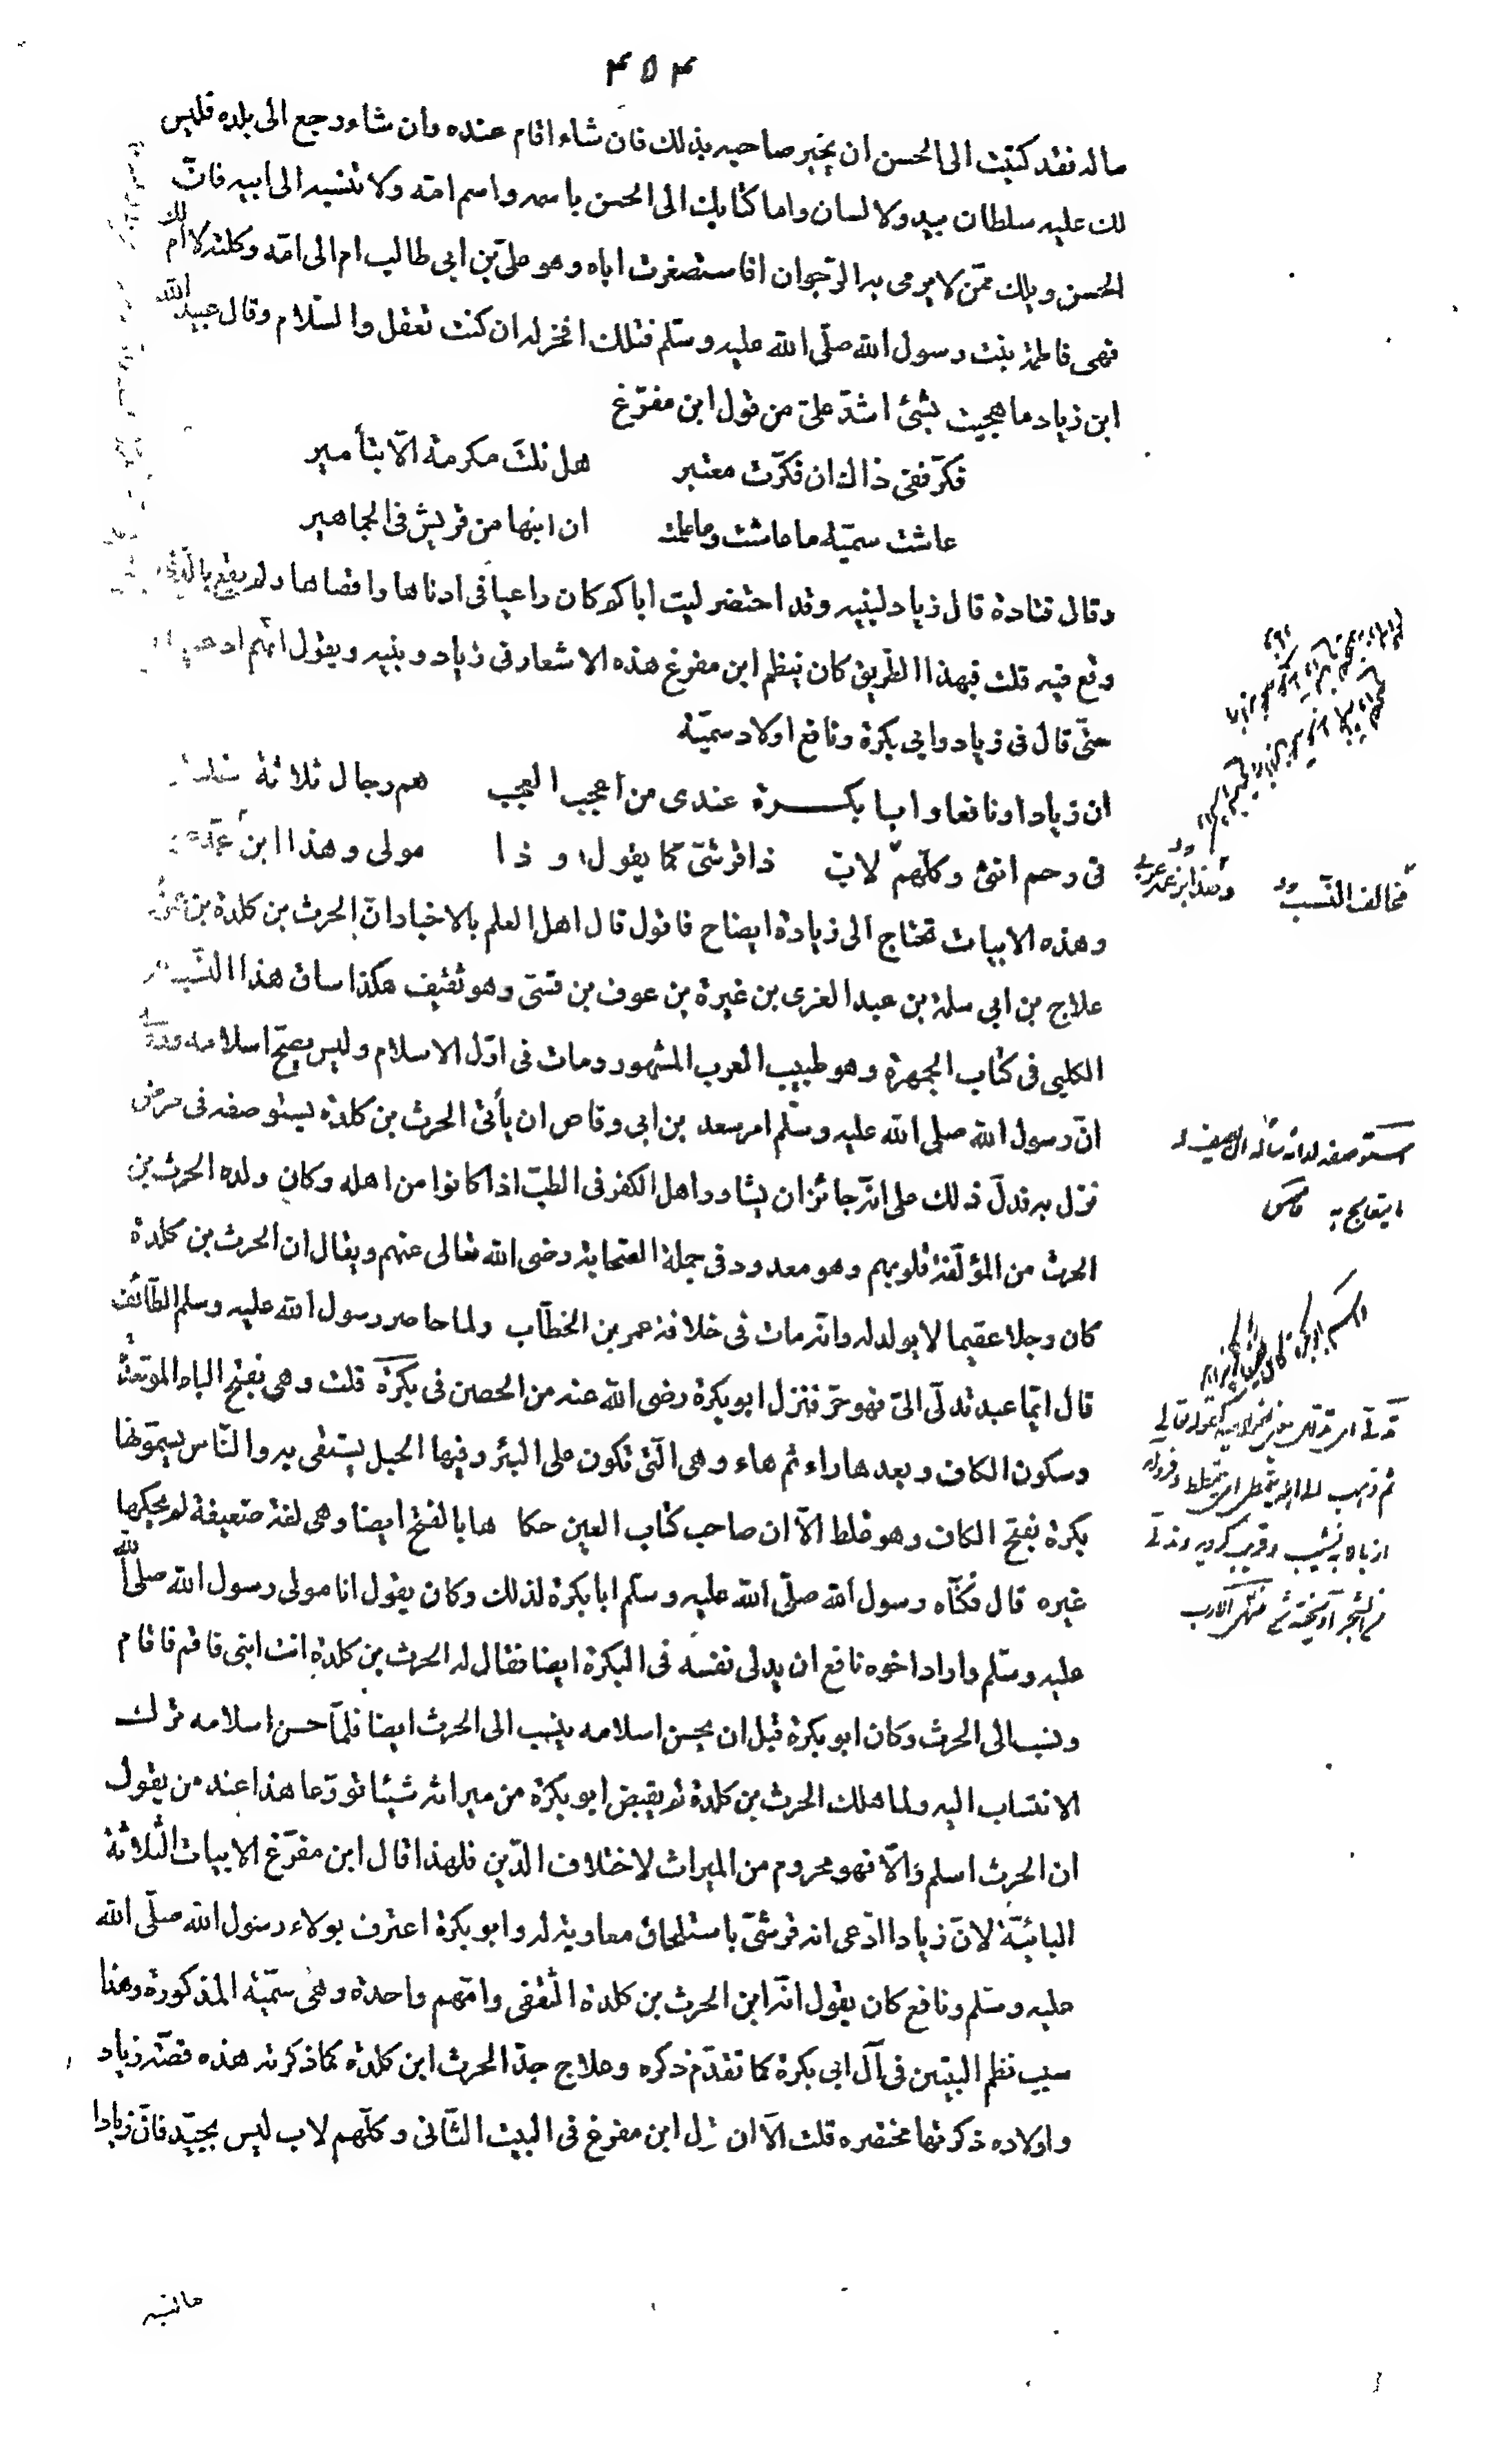 ٤٥٤
ماله فقد كتبت الى الحسن ان يخبر صاحبه بذلك فان شاء اقام عنده وان شاء رجع الى بلده فليس
لك عليه سلطان بيد ولا لسان واما كتابك الى الحسن باسمه واسم امّه ولا تنسبه الى ابيه فانّ
الحسن ويلك ممّن لا يرمى به الرّجوان افاستصغرت اباه وهو علىّ بن ابى طالب ام الى امّه وكلته لا امّ لك
فهى فاطمة بنت رسول الله صلّى الله عليه وسلّم فتلك افخر له ان كنت تعقل والسّلام وقال عبيد الله
ابن زياد ما هجيت بشئ اشدّ علىّ من قول ابن مفرّغ
فكّر ففى ذاك ان فكّرت معتبر هل نلت مكرمة الّا بتأمير
عاشت سميّة ما عاشت وما علمت ان ابنها من قريش فى الجماهير
وقال قتادة قال زياد لبنيه وقد احتضر ليت اباكم كان راعيا فى ادناها واقصاها ولم يقع بالّذى
وقع فيه قلت فبهذا الطّريق كان ينظم ابن مفرغ هذه الاشعار فى زياد وبنيه ويقول انّهم ادعياء
حتّى قال فى زياد وابى بكرة ونافع اولاد سميّة
ان زيادا ونافعا وابا بكرة عندى من اعجب العجب هم رجال ثلاثة خلقوا
فى رحم انثى وكلّهم لاب ذا قرشىّ كما يقول و ذا مولى وهذا ابن عمّه
وهذه الابيات تحتاج الى زيادة ايضاح فاقول قال اهل العلم بالاخبار انّ الحرث بن كلدة بن عمرو
علاج بن ابى سلمة بن عبد العزى بن غيرة بن عوف بن قسىّ وهو ثقيف هكذا ساق هذا النّسب
الكلبى فى كتاب الجمهرة وهو طبيب العرب المشهور ومات فى اوّل الاسلام وليس يصحّ اسلامه
انّ رسول الله صلى الله عليه وسلّم امر سعد بن ابى وقاص ان يأتى الحرث بن كلدة يستوصفه فى مرض
نزل به فدلّ ذلك على انّه جائز ان يشاور اهل الكفر فى الطبّ اذا كانوا من اهله وكان ولده الحرث بن
الحرث من المؤلّفة قلوبهم وهو معدود فى جملة الصّحابة رضى الله تعالى عنهم ويقال ان الحرث بن كلدة
كان رجلا عقيما لا يولد له وانّه مات فى خلافة عمر بن الخطّاب ولما حاصر رسول الله عليه وسلم الطّائف
قال ايّما عبد تدلّى الىّ فهو حرّ فنزل ابو بكرة رضى الله عنه من الحصن فى بكرة قلت وهى بفتح الباء الموحّدة
وسكون الكاف وبعدها راء ثم هاء وهى الّتى تكون على البئر وفيها الحبل يستقى به والنّاس يسمّونها
بكرة بفتح الكاف وهو غلط الّا ان صاحب كتاب العين حكا ها بالفتح ايضا وهى لغة ضعيفة لم يحكها
غيره قال فكنّاه رسول الله صلّى الله عليه وسلّم ابا بكرة لذلك وكان يقول انا مولى رسول الله صلّى الله
عليه وسلّم واراد اخوه نافع ان يدلى نفسه فى البكرة ايضا فقال له الحرث بن كلدة انت ابنى فاقم فاقام
ونسب الى الحرث وكان ابو بكرة قبل ان يحسن اسلامه ينسب الى الحرث ايضا فلمّا حسن اسلامه ترك
الانتساب اليه ولما هلك الحرث بن كلدة لم يقبض ابو بكرة من ميراثه شيئا تورّعا هذا عند من يقول
ان الحرث اسلم والّا فهو محروم من الميراث لاختلاف الدّين فلهذا قال ابن مفرّغ الابيات الثّلاثة
البائيّة لانّ زيادا ادّعى انه قرشىّ باستلحاق معاوية له وابو بكرة اعترف بولاء رسول الله صلّى الله
عليه وسلّم ونافع كان يقول انّه ابن الحرث بن كلدة الثّقفى وامّهم واحدة وهى سميّة المذكورة وهذا
سبب نظم البيتين فى آل ابى بكرة كما تقدّم ذكره وعلاج جدّ الحرث ابن كلدة كما ذكرته هذه قصّة زياد
واولاده ذكرتها مختصره قلت الّا ان قول ابن مفرغ فى البيت الثّانى وكلّهم لاب ليس بجيّد فانّ زيادا
مخالف النّسب